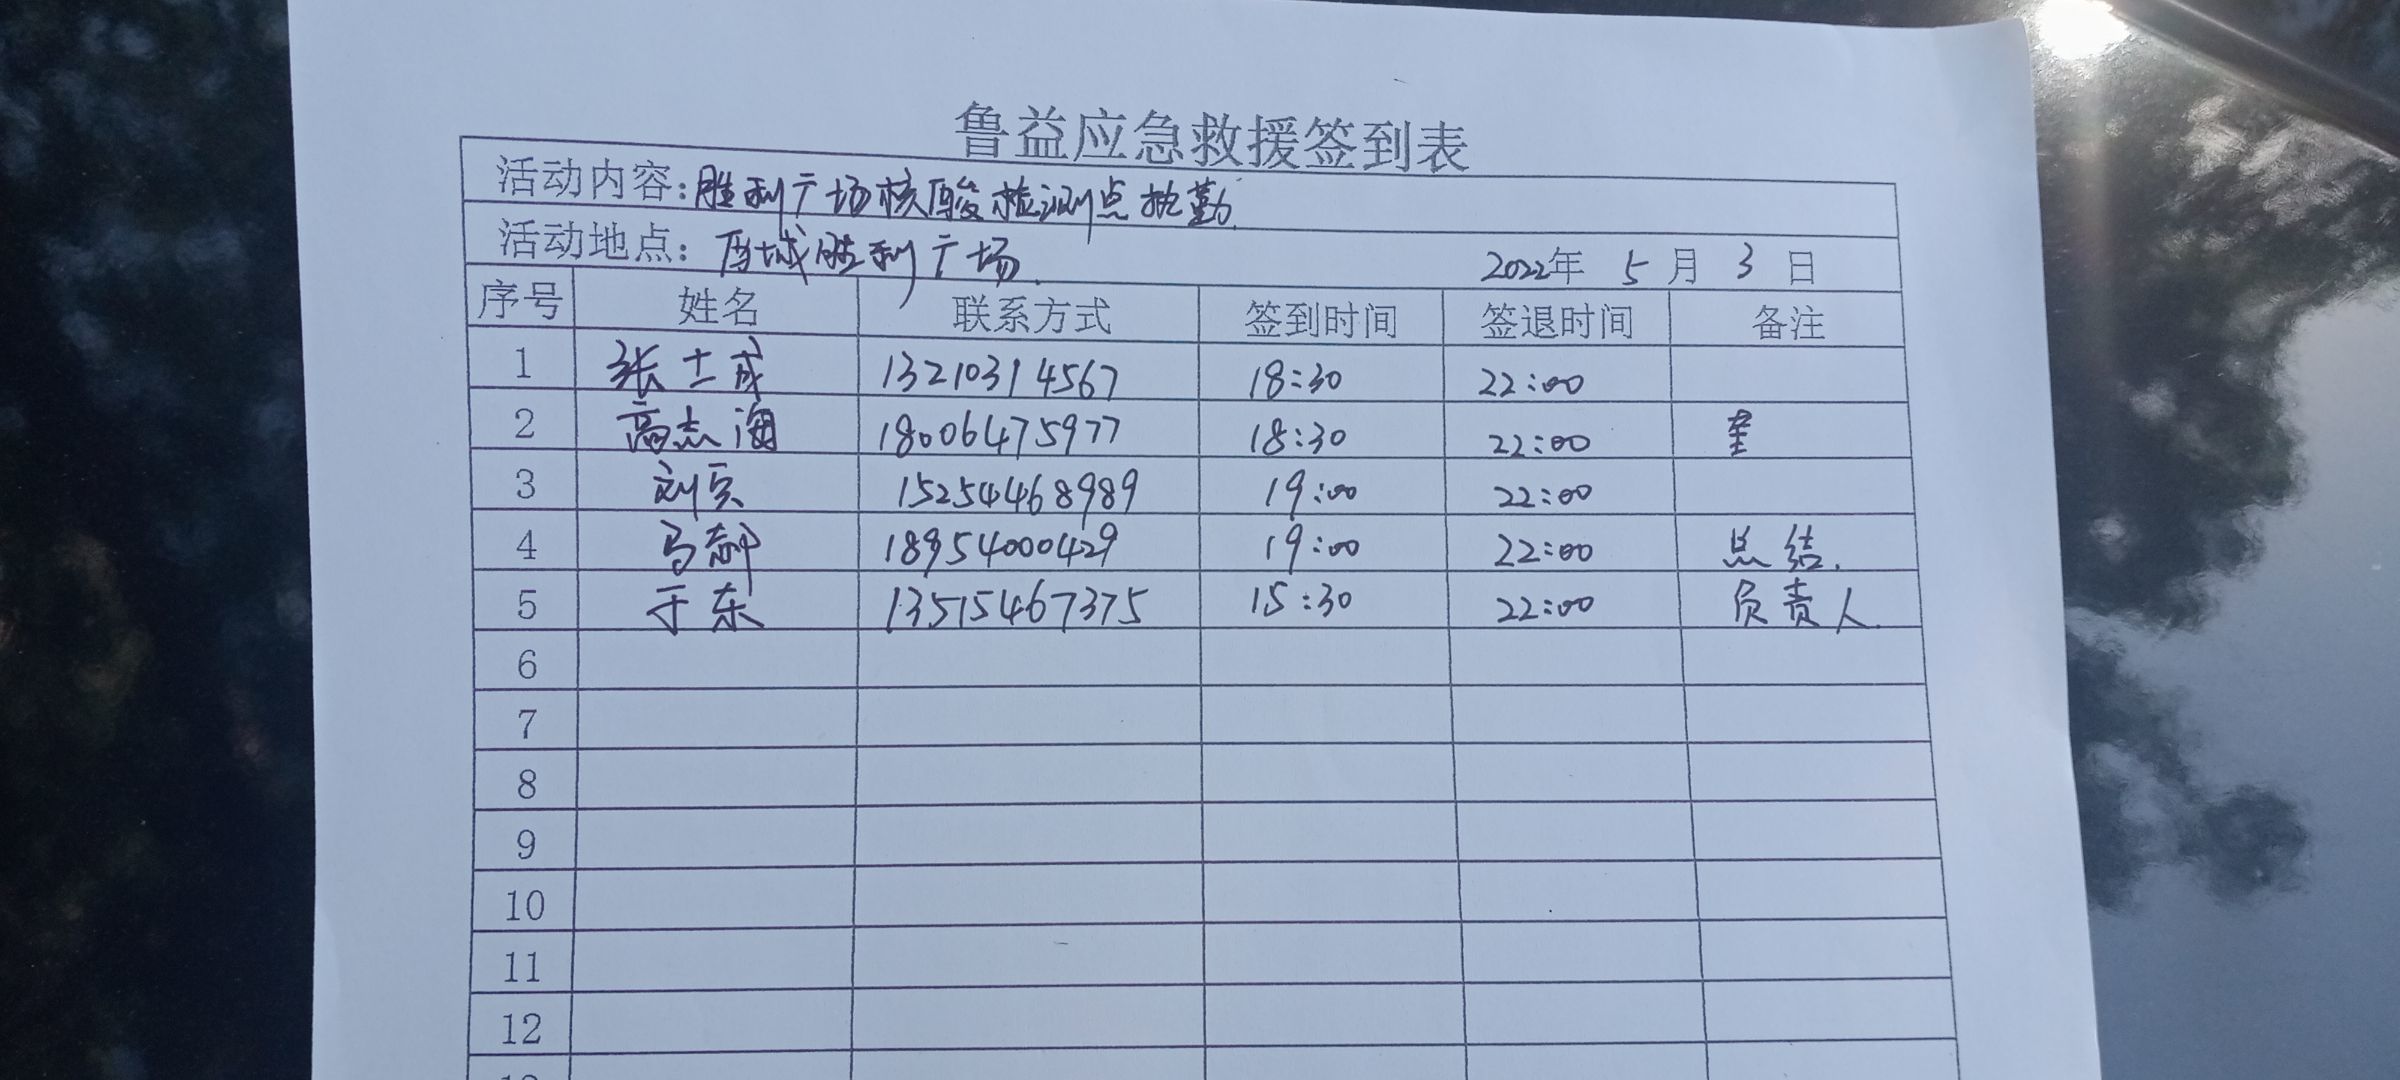 鲁益应急救援签到表
活动内容：胜利广场核酸检测点执勤.
活动地点：历城胜利广场. 2022年 5 月 3 日
序号 姓名 联系方式 签到时间 签退时间 备注
1 张士成 13210314567 18:30 22:00
2 高志海 18006475977 18:30 22:00
3 刘宾 15254468989 19:00 22:00
4 马郝 18954000429 19:00 22:00 总结.
5 于东 13515467375 15:30 22:00 负责人.
6
7
8
9
10
11
12